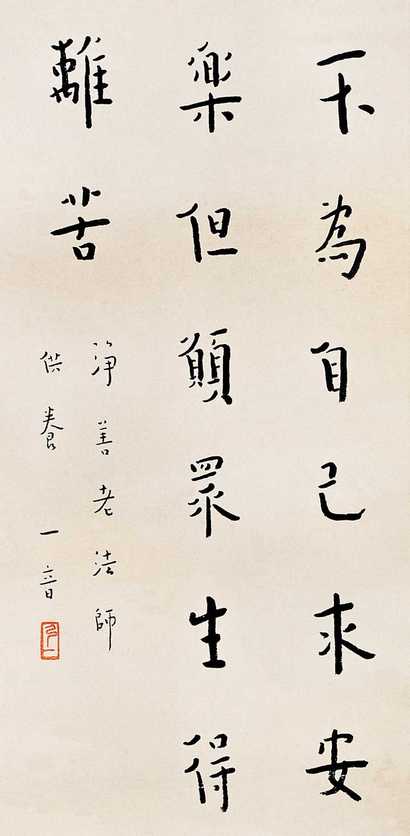 不為自己求安
樂但願眾生得
離苦
淨善老法師
供養 一音